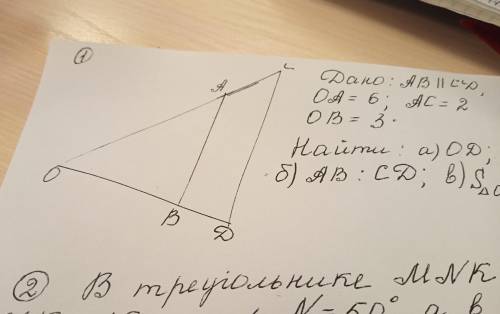 1
C
A
O
B
D
Дано: AB || CD,
OA = 6; AC = 2
OB = 3.
Найти: а) OD;
б) AB : CD; в) S△
2 В треугольнике MNK
N = 50° а в